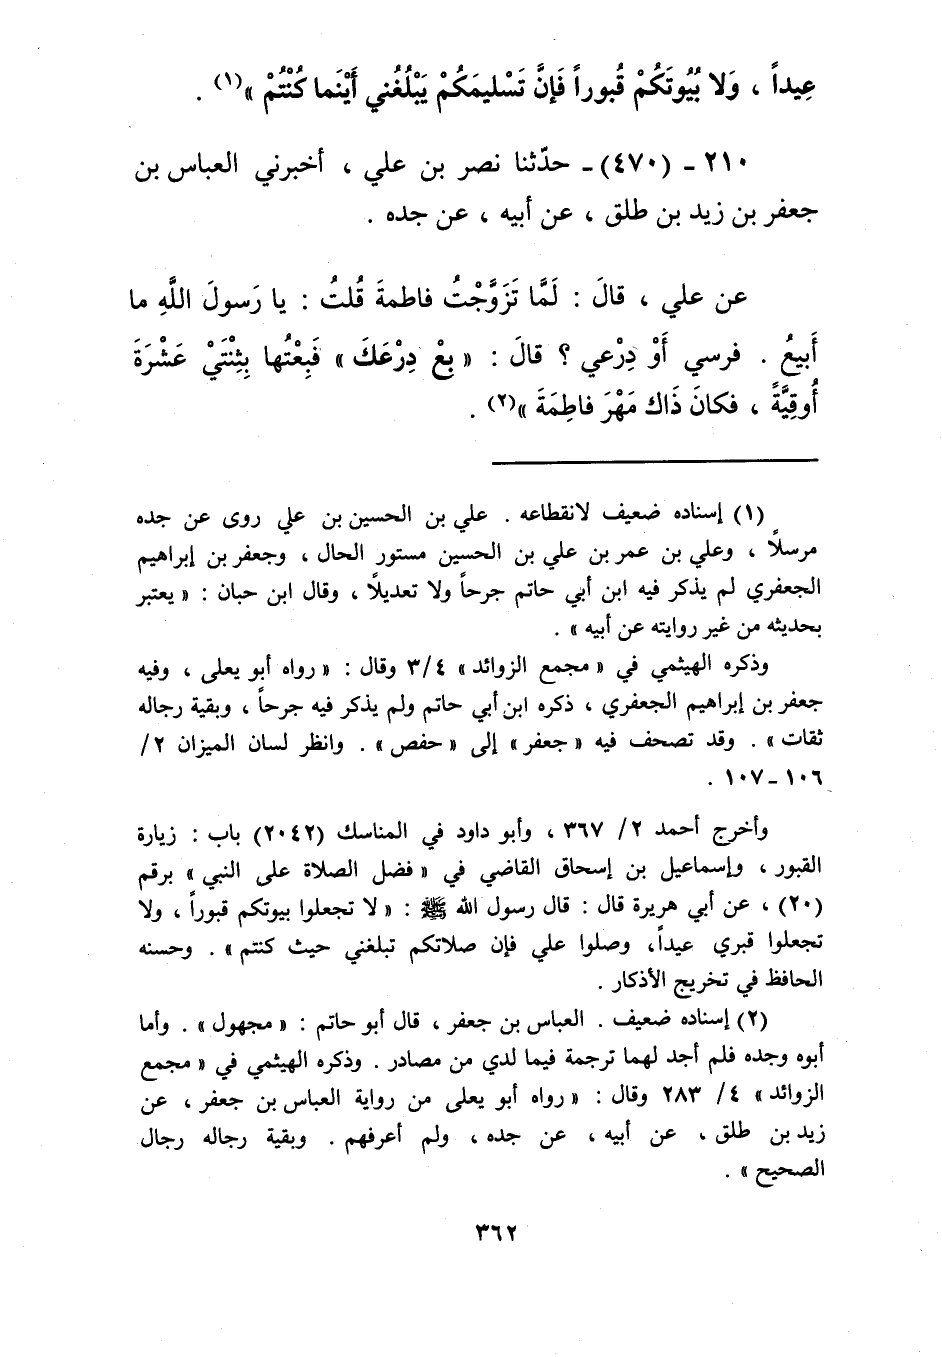 عِيداً ، وَلا بُيُوتَكُمْ قُبوراً فَإِنَّ تَسْليمَكُمْ يَبْلُغُني أَيْنَما كُنْتُمْ »(١) .
٢١٠ ـ (٤٧٠)ـ حدّثنا نصر بن علي ، أخبرني العباس بن
جعفر بن زيد بن طلق ، عن أبيه ، عن جده .
عن علي ، قالَ : لَمَّا تَزَوَّجْتُ فاطمةَ قُلتُ : يا رَسولَ اللَّهِ ما
أَبيعُ . فرسي أَوْ دِرْعي ؟ قالَ : « بِعْ دِرْعَكَ » فَبِعْتُها بِثِنْتَيْ عَشْرَةَ
أُوقِيَّةً ، فكانَ ذَاكَ مَهْرَ فاطِمَةَ »(٢) .
(١) إسناده ضعيف لانقطاعه . علي بن الحسين بن علي روى عن جده
مرسلاً ، وعلي بن عمر بن علي بن الحسين مستور الحال ، وجعفر بن إبراهيم
الجعفري لم يذكر فيه ابن أبي حاتم جرحاً ولا تعديلاً ، وقال ابن حبان : « يعتبر
بحديثه من غير روايته عن أبيه » .
وذكره الهيثمي في « مجمع الزوائد » ٣/٤ وقال : « رواه أبو يعلى ، وفيه
جعفر بن إبراهيم الجعفري ، ذكره ابن أبي حاتم ولم يذكر فيه جرحاً ، وبقية رجاله
ثقات » . وقد تصحف فيه « جعفر » إلى « حفص » . وانظر لسان الميزان ٢/
١٠٦ ـ ١٠٧ .
وأخرج أحمد ٢/ ٣٦٧ ، وأبو داود في المناسك (٢٠٤٢) باب : زيارة
القبور ، وإسماعيل بن إسحاق القاضي في « فضل الصلاة على النبي » برقم
(٢٠) ، عن أبي هريرة قال : قال رسول الله ﷺ : « لا تجعلوا بيوتكم قبوراً ، ولا
تجعلوا قبري عيداً، وصلوا علي فإن صلاتكم تبلغني حيث كنتم » . وحسنه
الحافظ في تخريج الأذكار .
(٢) إسناده ضعيف . العباس بن جعفر ، قال أبو حاتم : « مجهول » . وأما
أبوه وجده فلم أجد لهما ترجمة فيما لدي من مصادر . وذكره الهيثمي في « مجمع
الزوائد » ٤/ ٢٨٣ وقال : « رواه أبو يعلى من رواية العباس بن جعفر ، عن
زيد بن طلق ، عن أبيه ، عن جده ، ولم أعرفهم . وبقية رجاله رجال
الصحيح » .
٣٦٢